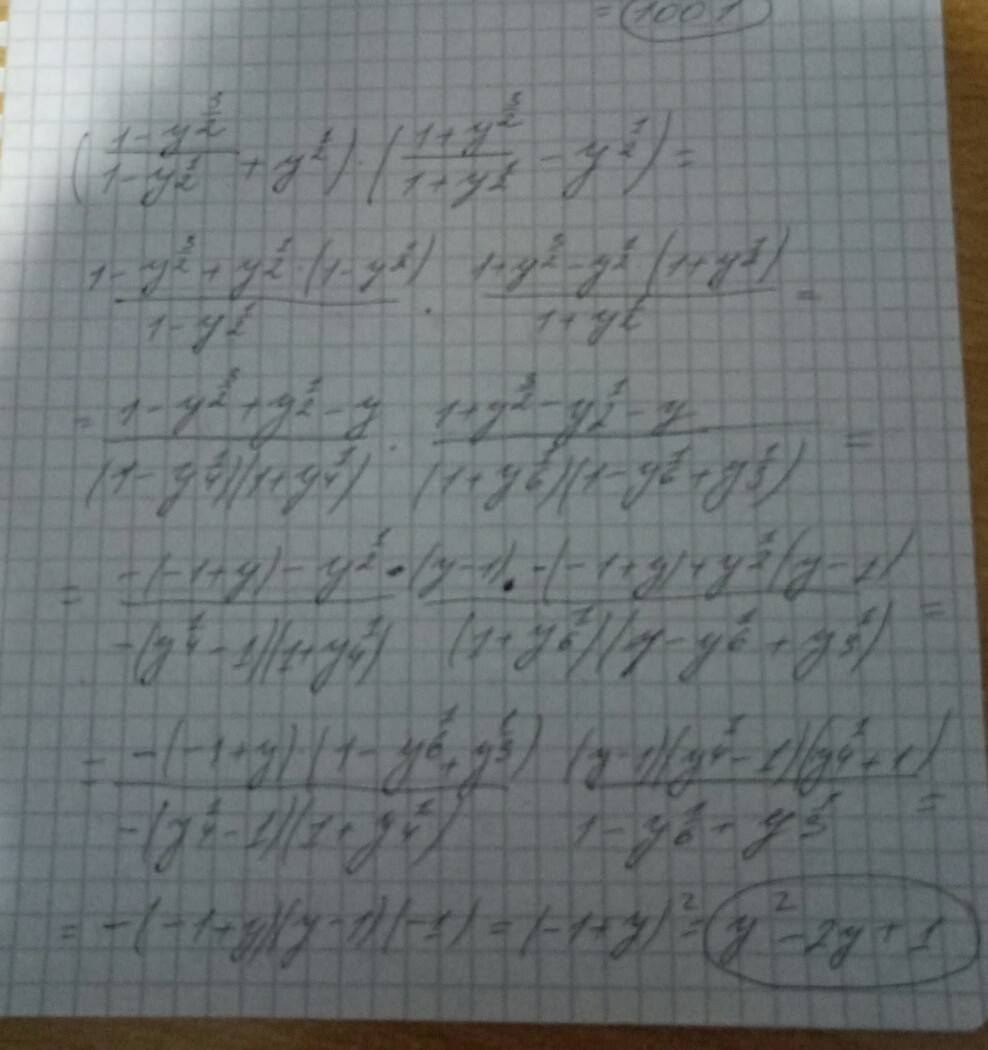 = 1001
((1-y^(3/2))/(1-y^(1/2)) + y^(1/2)) · ((1+y^(3/2))/(1+y^(1/2)) - y^(1/2)) =
(1-y^(3/2)+y^(1/2)·(1-y^(1/2)))/(1-y^(1/2)) · (1+y^(3/2)-y^(1/2)·(1+y^(1/2)))/(1+y^(1/2)) =
= (1-y^(3/2)+y^(1/2)-y)/((1-y^(1/4))(1+y^(1/4))) · (1+y^(3/2)-y^(1/2)-y)/((1+y^(1/6))(1-y^(1/6)+y^(1/3))) =
= (-(-1+y)-y^(1/2)·(y-1))/(-(y^(1/4)-1)(1+y^(1/4))) · (-(-1+y)+y^(1/2)(y-1))/((1+y^(1/6))(1-y^(1/6)+y^(1/3))) =
= (-(-1+y)·(1-y^(1/6)+y^(1/3)))/(-(y^(1/4)-1)(1+y^(1/4))) · ((y-1)(y^(1/4)-1)(y^(1/4)+1))/(1-y^(1/6)+y^(1/3)) =
= -(-1+y)(y-1)(-1) = (-1+y)^2 = y^2-2y+1